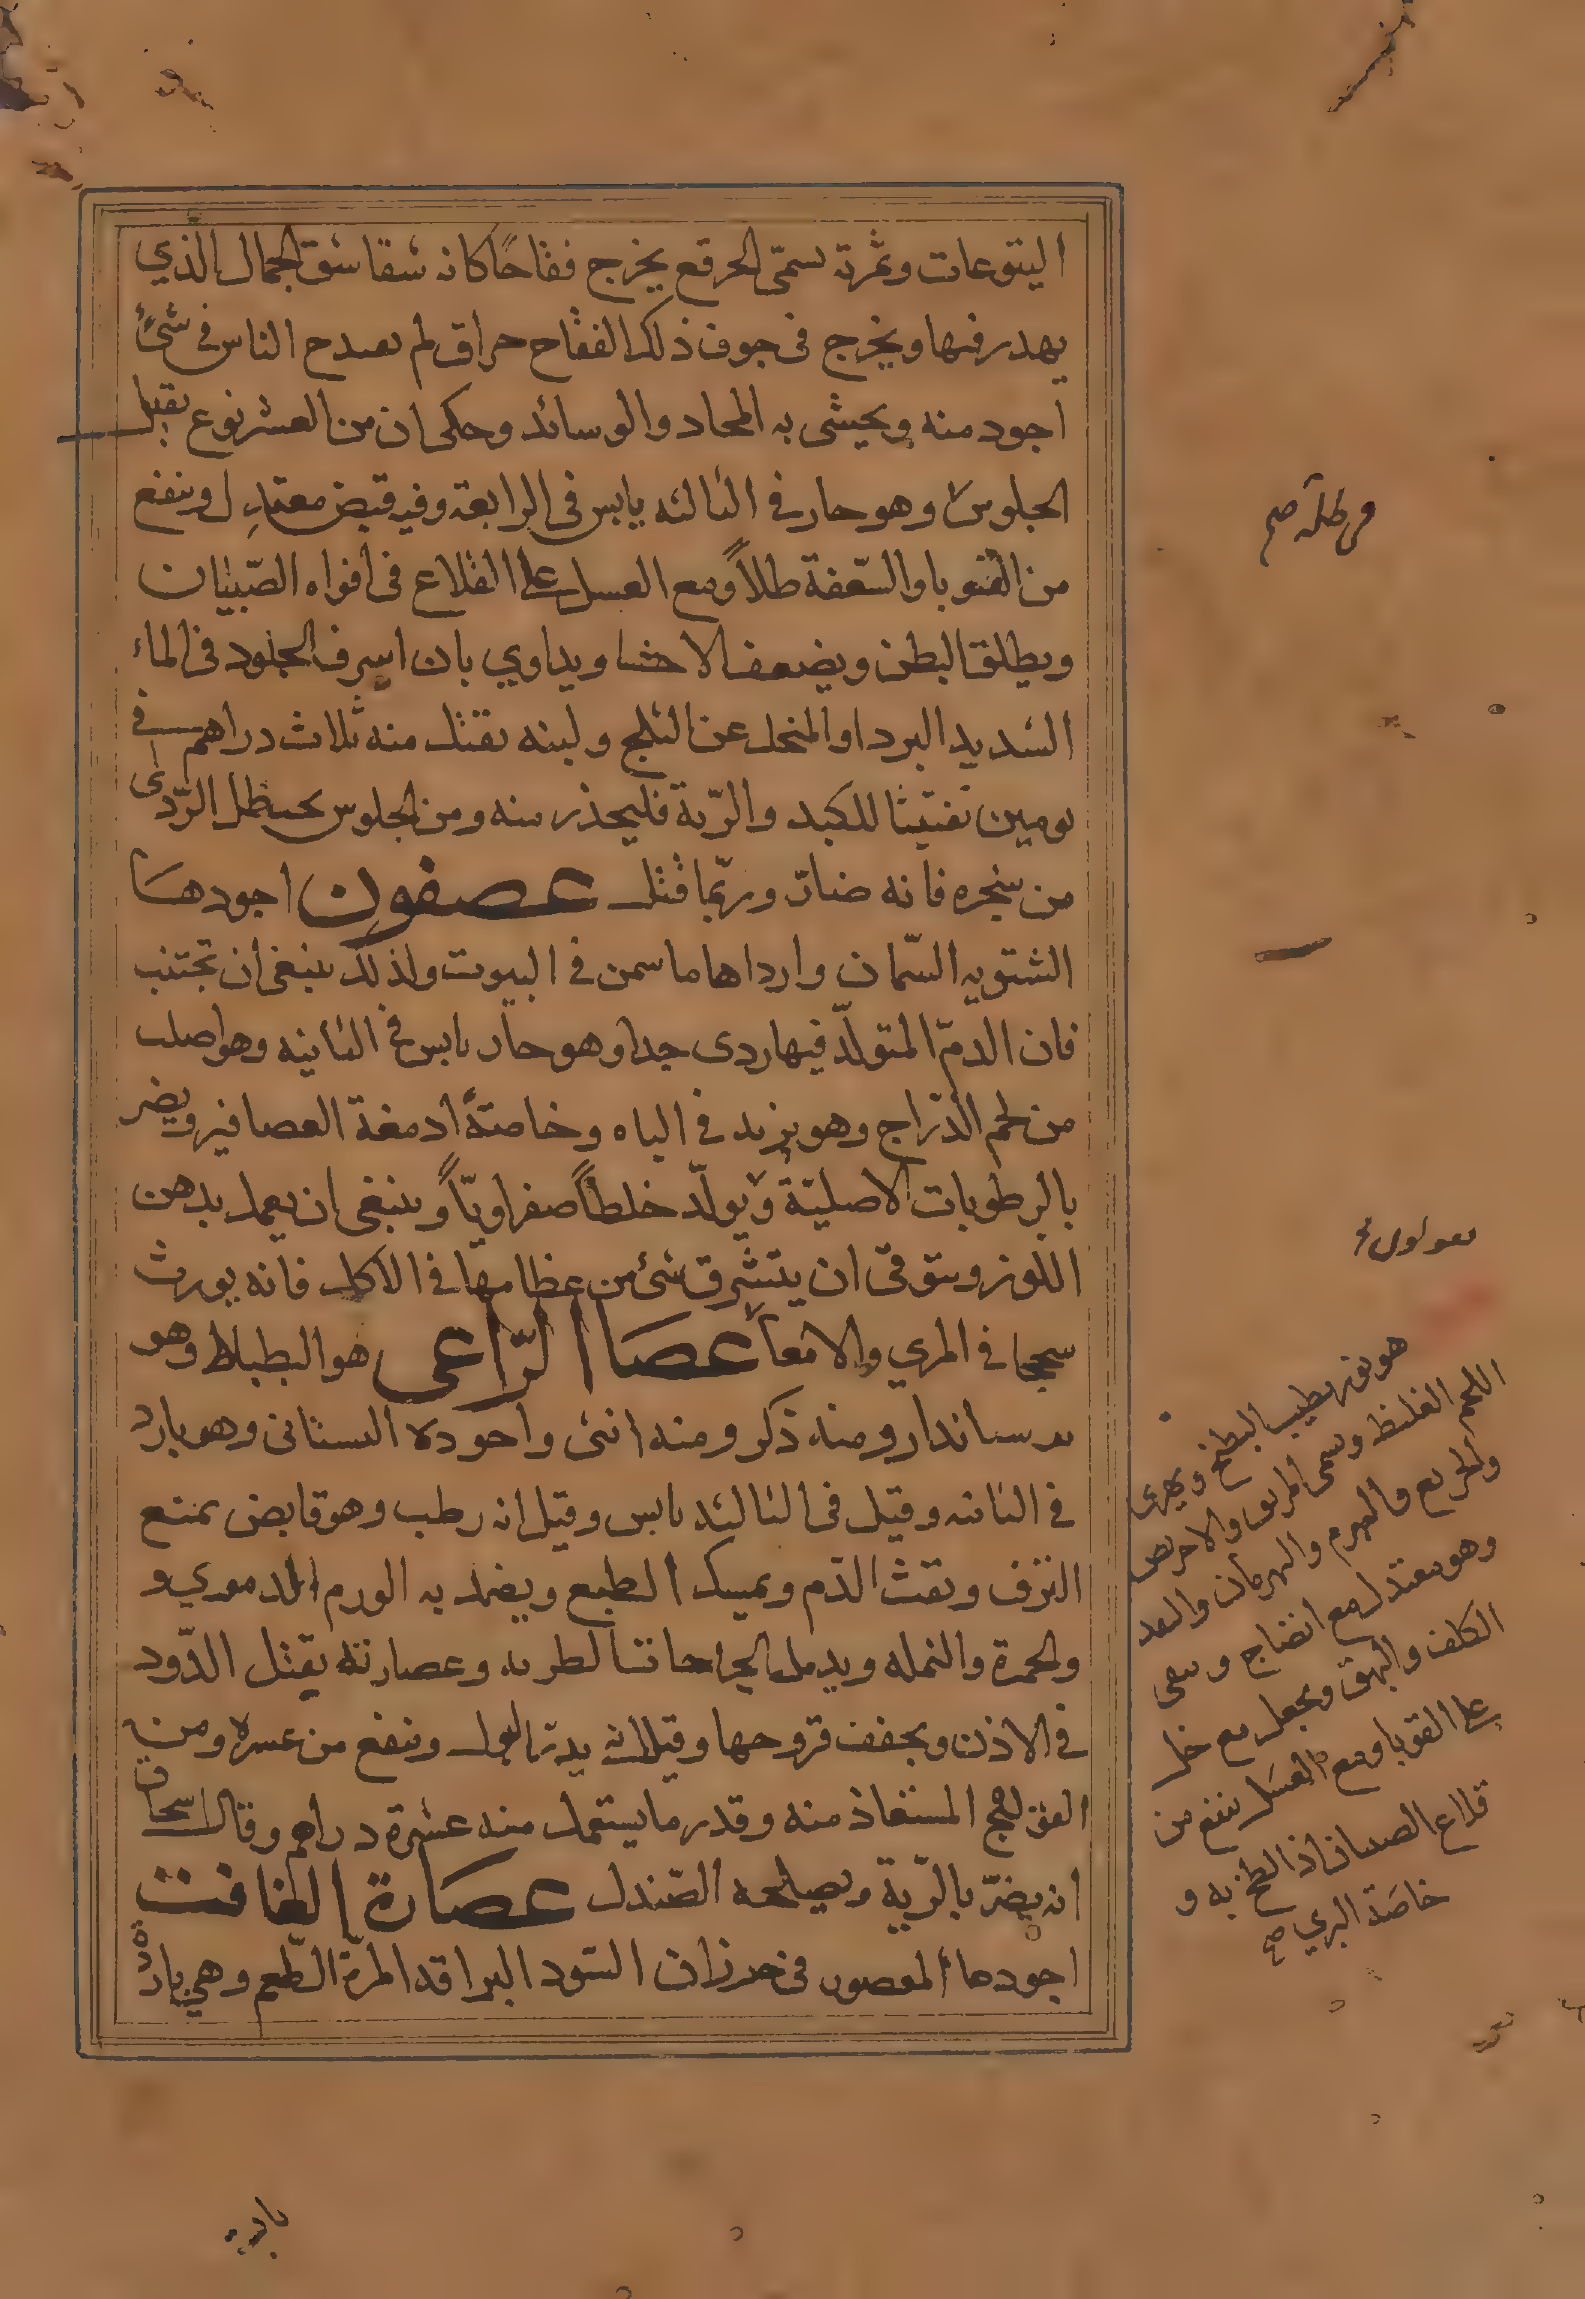 اليتوعات وثمرته تسمّى الحرقع يخرج فقاحًا كانه شقاشق الجمال الذي
يهدر فيها ويخرج فى جوف ذلك الفقاح حراق لم يقدح الناس فى شئ
اجود منه ويحشى به المخاد والوسائد وحكى ان من العشر نوع يقتل
الجلوس وهو حار فى الثالثه يابس فى الرابعة وفيه قبض معتدل وينفع
من القوبا والسّعفة طلاً ومع العسل على القلاع فى افواه الصّبيان
ويطلق البطن ويضعف الاحشا ويداوي بان اسرف الجلود فى الماء
الشديد البرد او المنحل عن الثلج ولبنه يقتل منه ثلاث دراهم فى
يومين تفتيتا للكبد والرّية فليحذر منه ومن الجلوس تحت ظل الرّدى
من شجره فانه ضارّ وربّما قتل عصفور اجودها
الشتويه السّمان وارداها ما سمن فى البيوت ولذلك ينبغى ان تجتنب
فان الدم المتولّد فيها ردى جدا وهو حار يابس فى الثانيه وهو اصلب
من لحم الدّرّاج وهو يزيد فى الباه وخاصّة ادمغة العصافير ويضر
بالرطوبات الاصليّة ويولّد خلطاً صفراويّاً وينبغى ان يعمل بدهن
اللوز ويتوقى ان يتشرق شئ من عظامها فى الاكل فانه يورث
سحجا فى المري والامعا عصا الرّاعى هو البطباط وهو
برسياندارو منه ذكر ومنه انثى واجوده البستانى وهو بارد
فى الثانيه وقيل فى الثالثه يابس وقيل انه رطب وهو قابض يمنع
النزف ونفث الدّم ويمسك الطبع ويضمد به الورم الدموي و
والحمرة والنمله ويدمل الجراحات الطريه وعصارته يقتل الدّود
فى الاذن ويجفف قروحها وقيل انه يدرّ البول وينفع من عسره ومن
المستفاذ منه وقدر ما يستعمل منه عشرة دراهم وقال اسحاق
انه يضرّ بالرّية ويصلحه الصّندل عصارة الغافت
اجودها المعصور فى حزيران السّود البراقه المرّة الطّعم وهي بارده
هو بزره يطيب البطيخ ويهرى
اللحم الغليظ ويسمى المريق والاحريض
والبهرم والبهرمان
وهو معتدل مع انضاج وينقى
الكلف والبهق ويجعل مع خل
على القوبا ومع العسل ينفع من
قلاع الصبيان اذا لطخ به و
خاصّة البري صح
بارده